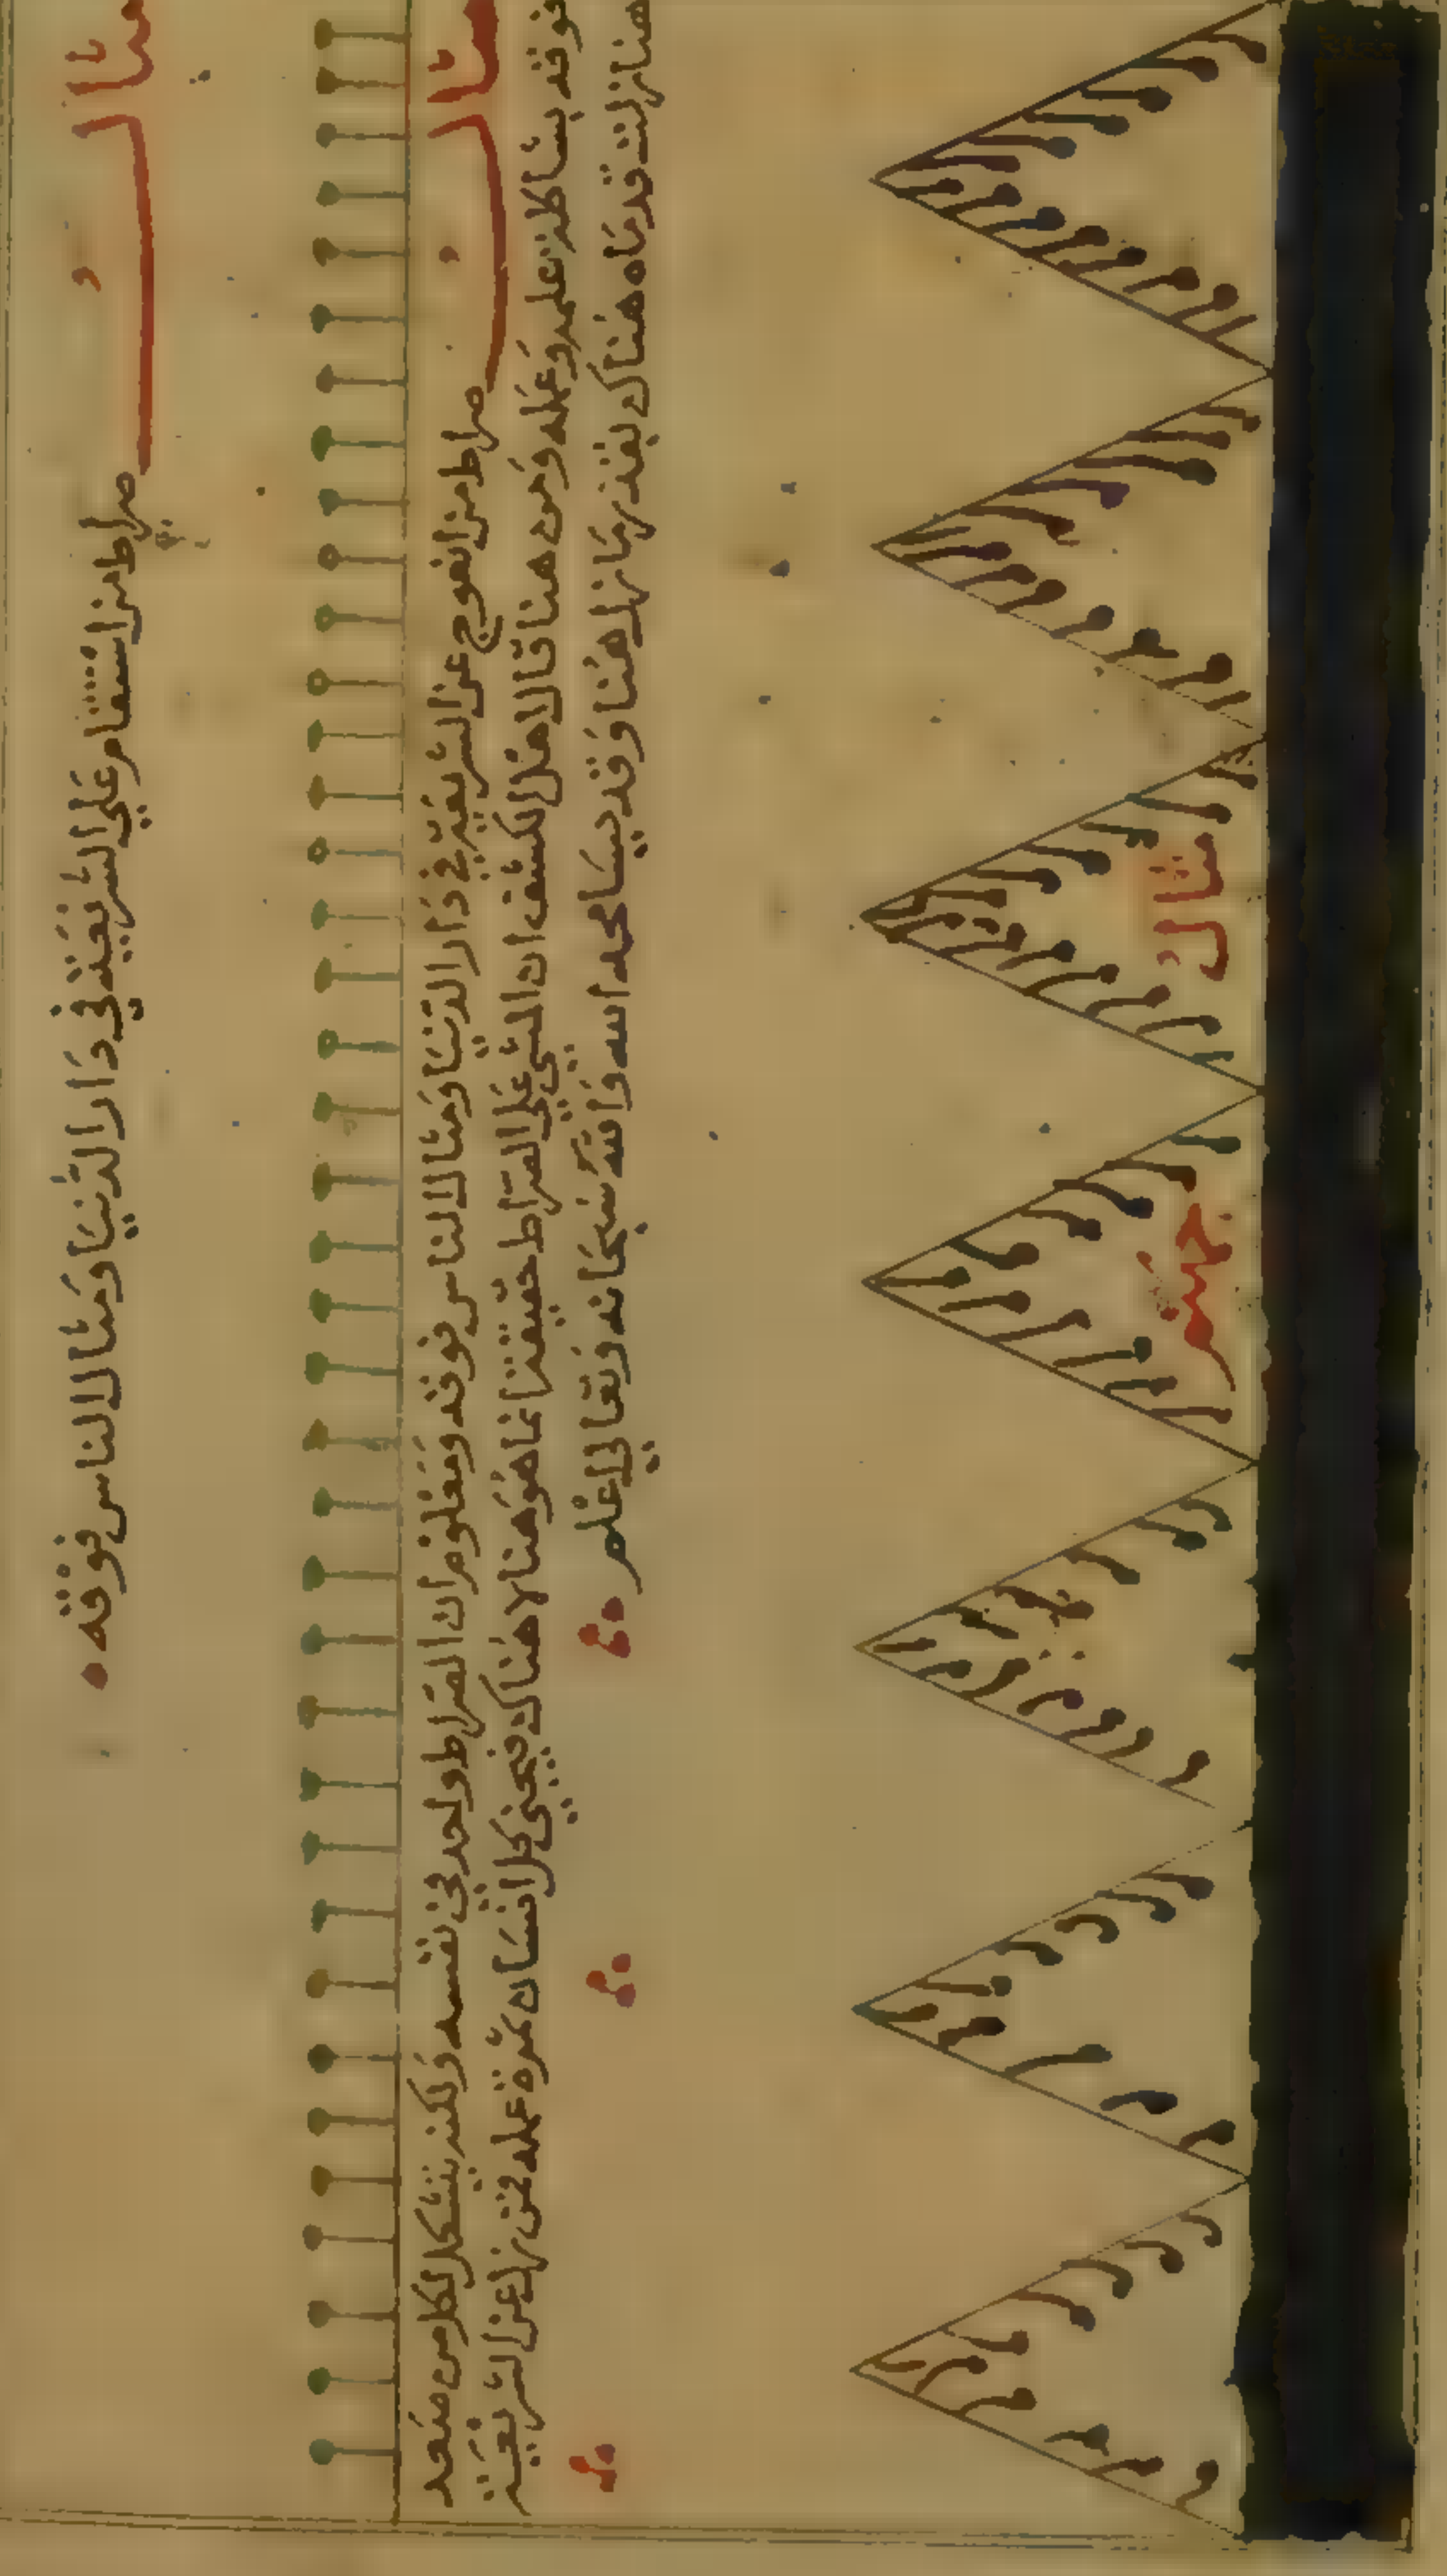 مثال صراط من استقام علي الشريعة في دار الدنيا ومثال الناس فوقه
مثال صراط من انعوج عن الشريعة في دار الدنيا ومثال الناس فوقه ومعلوم ان الصراط واحد في نفسه ولكنه يتشكل لكل من صعد
فوقه بشاكلة علمه وعمله ومن هنا قال اهل الكشف ان المشي علي الصراط حقيقة انما هو هنا لا هناك فيجني كل انسان ثمرة عمله فمن زل عن الشريعة
هنا زلت قدماه هناك بقدر ما زل هنا وقد يسامحه الله والله سبحانه وتعالي اعلم
مثال جهنم